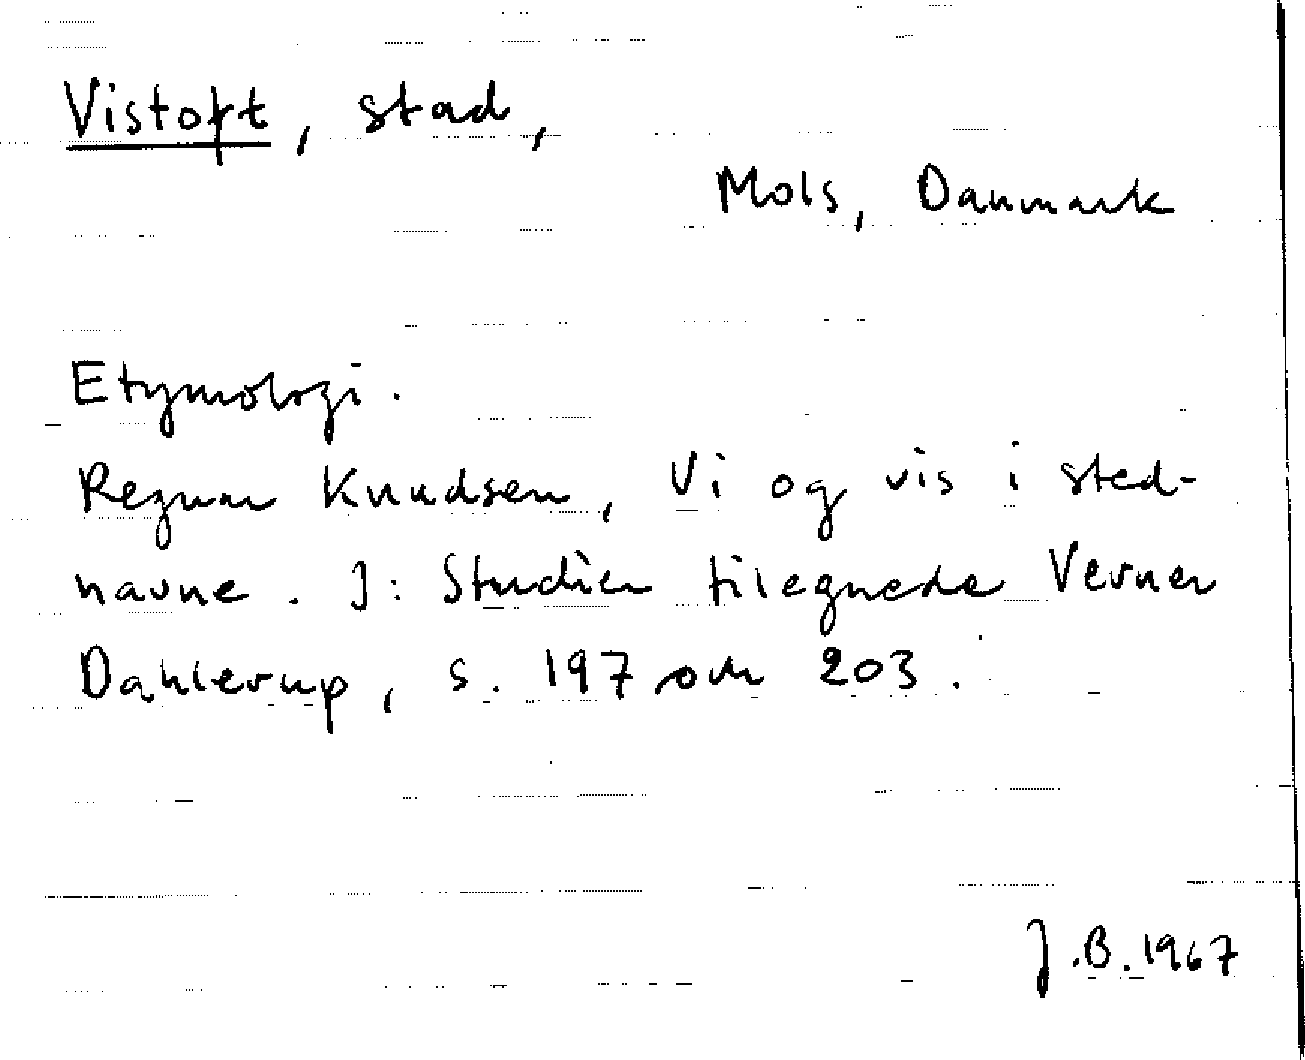 Vistoft, stad,
Mols, Danmark
Etymologi.
Regnar Knudsen, Vi og vis i sted-
navne. I: Studier tilegnede Verner
Dahlerup, s. 197 och 203.
J.B. 1967